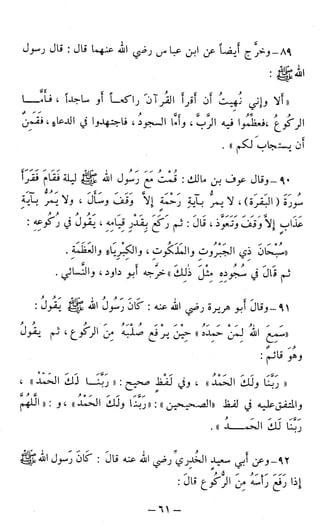 ٨٩-وخرَّج أيضاً عن ابن عباس رضي الله عنهما قال : قال رسول
الله ﷺ :
« ألا وإني نُهيتُ أن أقرأ القرآن راكعــاً أو ساجداً ، فأمَّــا
الركوعُ ، فعظِّموا فيه الربَّ ، وأمَّا السجودُ ، فاجتهدوا في الدعاء ، فقَمِنٌ
أن يستجابَ لكم » .
٩٠-وقال عوف بن مالك : قُمْتُ مَعَ رَسُولِ الله ﷺ ليلة فقَامَ فَقَرَأَ
سُورَةَ ( البَقَرة ) ، لا يمرُّ بآيةِ رَحْمَةٍ إلاَّ وَقَفَ وسَأَلَ ، ولا يَمُرُّ بآيَةِ
عَذابٍ إلاَّ وَقَفَ وتَعَوَّذ ، قَالَ : ثم رَكَعَ بِقَدْرِ قِيامِهِ ، يَقُولُ في رُكُوعِهِ :
« سُبْحَانَ ذي الجَبَرُوتِ والمَلَكُوتِ ، والكِبْرِيَاءِ والعَظَمَةِ .
ثم قَالَ في سُجُودِهِ مِثْلَ ذَلِكَ » خرَّجه أبو داود ، والنَّسائي .
٩١-وقالَ أبو هريرة رضي الله عنه : كَانَ رَسُولُ الله ﷺ يَقُولُ :
« سَمِعَ اللهُ لِمَنْ حَمِدَهُ » حِيْنَ يرفَع صُلْبَهُ مِنَ الركوعِ ، ثم يقولُ
وهُوَ قائمٌ :
« رَبَّنَا ولَكَ الحَمْدُ » ، وفي لَفْظٍ صحيح : « رَبَّنَــا لَكَ الحَمْدُ » ،
والمتفق عليه في لفظ «الصحيحين» : «رَبَّنَا ولَكَ الحَمْدُ» ، و : « اللَّهُمَّ
رَبَّنَا لَكَ الحَمــدُ » .
٩٢-وعن أبي سعيدٍ الخُدريِّ رضي الله عنه قالَ : كَانَ رَسولُ الله ﷺ
إذا رَفَعَ رَأسَهُ مِنَ الرُّكوعِ قالَ :
-٦١-